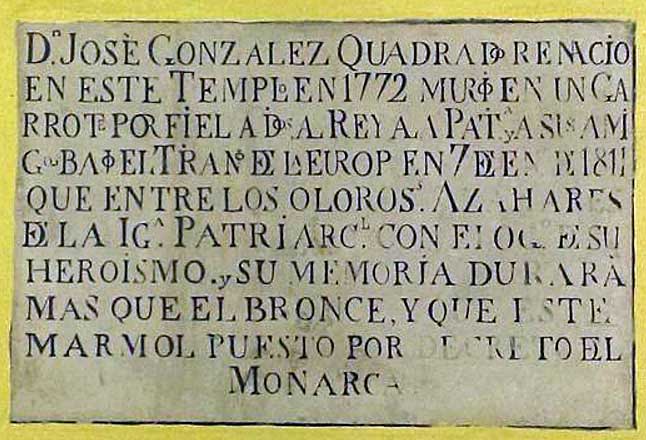 Dⁿ. JOSÈ GONZALEZ QUADRADO RENACIO
EN ESTE TEMPLO EN 1772 MURIO EN UN GA
RROTE POR FIEL A DIOS AL REY A LA PATᴬ y A SUS AMI
GOS BAJO EL TIRANO DE LA EUROP EN 7 DE EN DE 1811
QUE ENTRE LOS OLOROSˢ. AZAHARES
DE LA IGᴬ. PATRIARCᴸ CON ELOGO DE SU
HEROISMO. y SU MEMORIA DURARÀ
MAS QUE EL BRONCE, Y QUE ESTE
MARMOL PUESTO POR DECRETO DEL
MONARCA